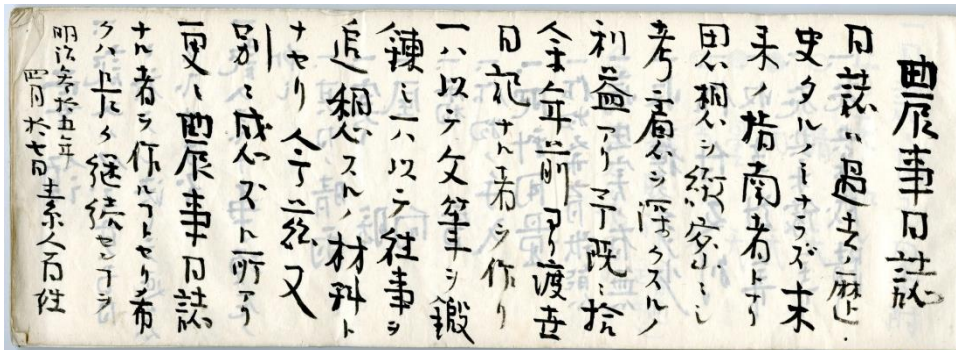 農事日誌
日誌ハ過去ノ歴
史タルノミナラズ未
来ノ指南者トナリ
思想ヲ緻密ニシ
考慮ヲ深クスルノ
利益アリ予既ニ拾
余年前ヨリ渡世
日記ナル者ヲ作リ
一ハ以テ文筆ヲ鍛
錬シ一ハ以テ往事ヲ
追想スルノ材料ト
ナセリ今茲又
別ニ感ズル所アリ
更ニ農事日誌
ナル者ヲ作ルコトセリ希
クハ長ク継続センコトヲ
明治参拾五年
四月拾七日素人百姓